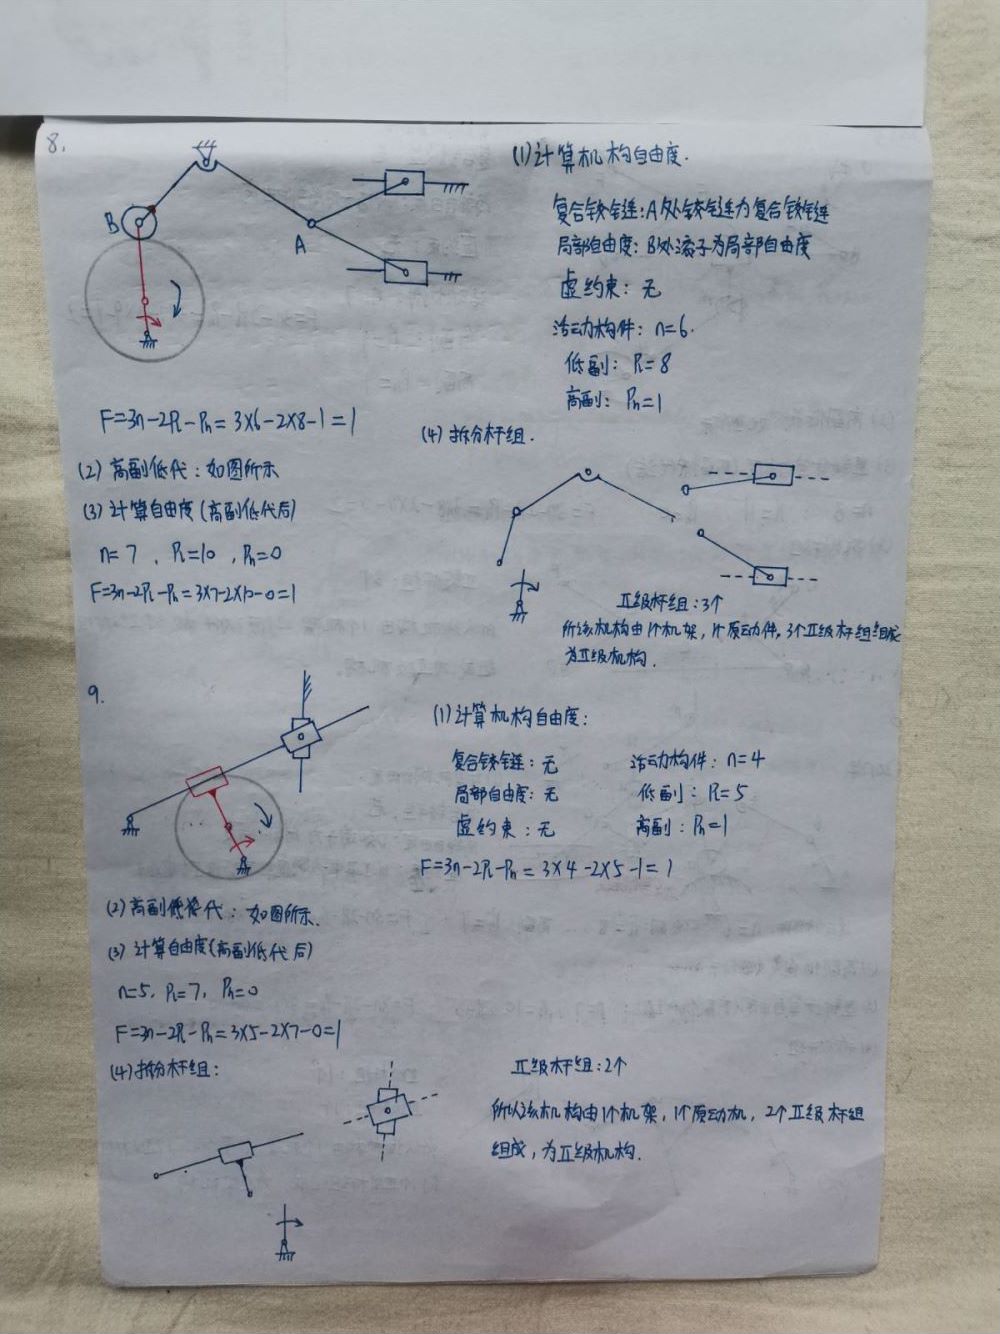 8.
B
A
(1)计算机构自由度.
复合铰链:A处铰链为复合铰链
局部自由度:B处滚子为局部自由度
虚约束:无
活动构件:n=6.
低副:Pl=8
高副:Ph=1
F=3n-2Pl-Ph=3×6-2×8-1=1
(2)高副低代:如图所示
(3)计算自由度(高副低代后)
n=7,Pl=10,Ph=0
F=3n-2Pl-Ph=3×7-2×10-0=1
(4)拆分杆组.
Ⅱ级杆组:3个
所以该机构由1个机架,1个原动件,3个Ⅱ级杆组组成
为Ⅱ级机构.
9.
(1)计算机构自由度:
复合铰链:无
活动构件:n=4
局部自由度:无
低副:Pl=5
虚约束:无
高副:Ph=1
F=3n-2Pl-Ph=3×4-2×5-1=1
(2)高副低代:如图所示.
(3)计算自由度(高副低代后)
n=5,Pl=7,Ph=0
F=3n-2Pl-Ph=3×5-2×7-0=1
(4)拆分杆组:
Ⅱ级杆组:2个
所以该机构由1个机架,1个原动机,2个Ⅱ级杆组
组成,为Ⅱ级机构.